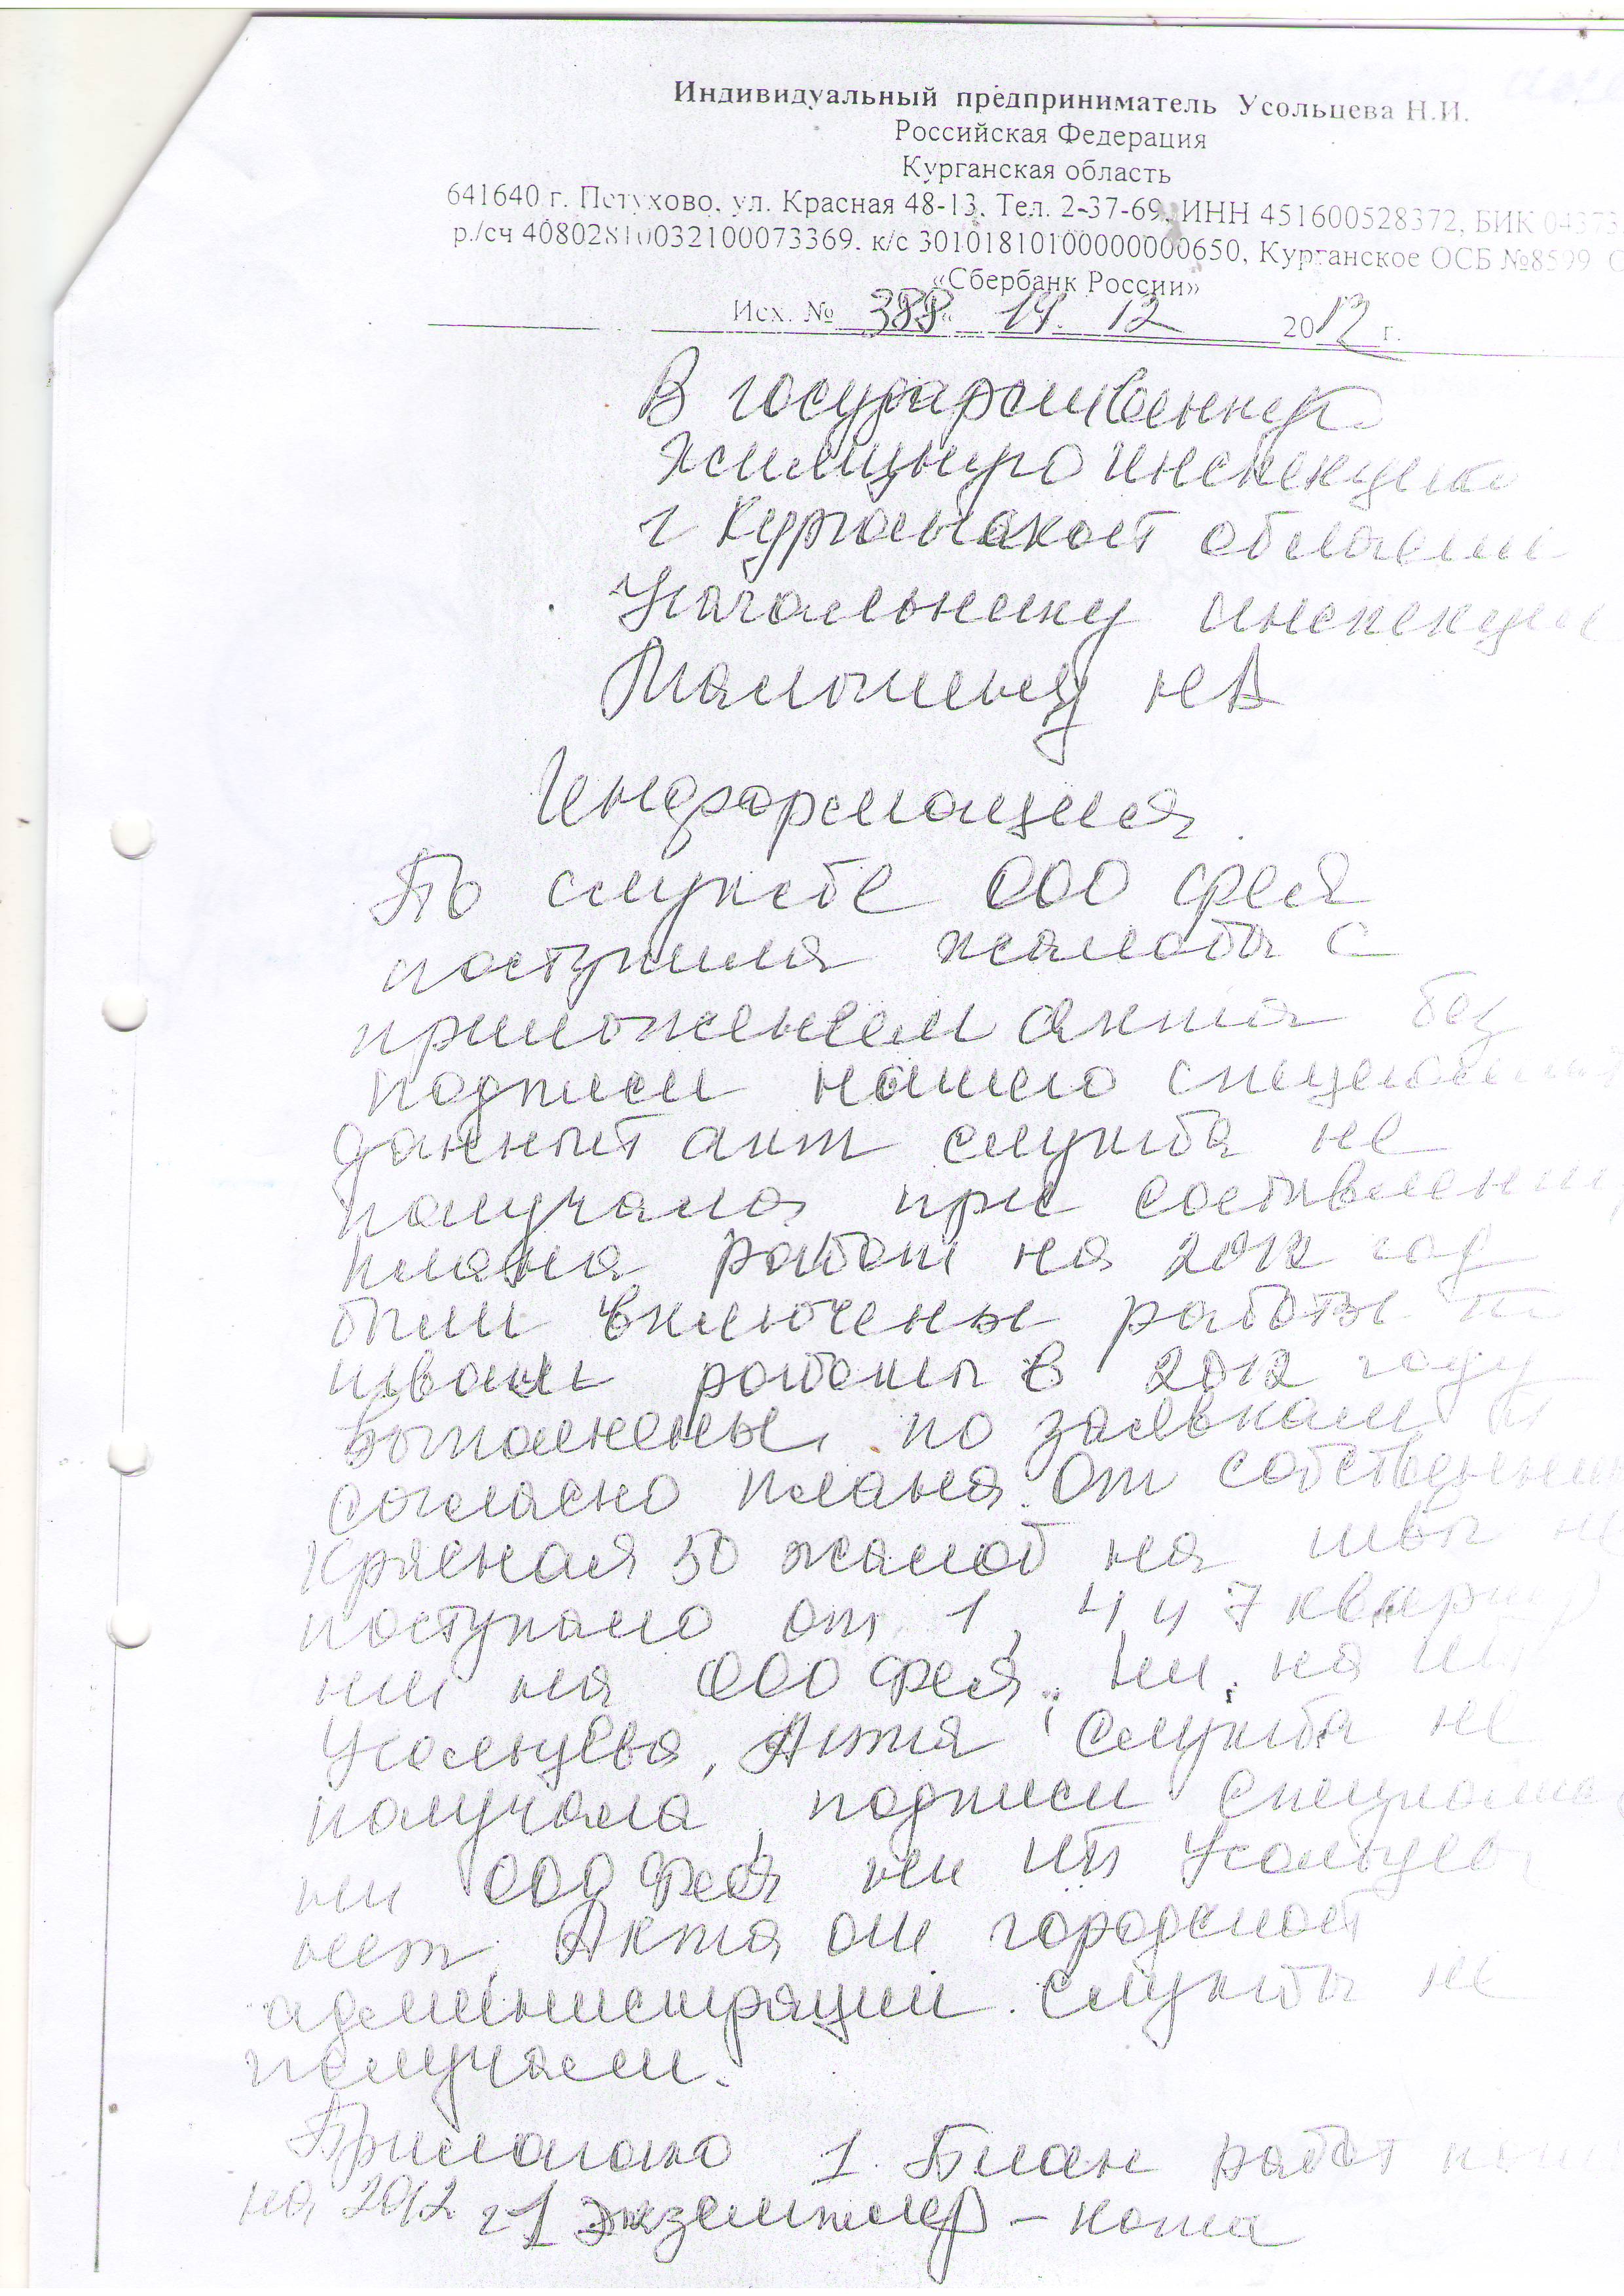 Индивидуальный предприниматель Усольцева Н.И.
Российская Федерация
Курганская область
641640 г. Петухово, ул. Красная 48-13, Тел. 2-37-69, ИНН 451600528372, БИК 04373
р./сч 40802810032100073369. к/с 30101810100000000650, Курганское ОСБ №8599
«Сбербанк России»
Исх. № 388 « 14. 12 2012 г.
В государственную
жилищную инспекцию
г Курганской области
Начальнику инспекции
НА
Информация
По службе ООО Фея
поступила жалоба с
приложением акта без
подписи нашего
данный акт служба не
получала при составлении
плана работ на 2012 год
были включены работы по
швам работы в 2012 году
выполнены по заявкам и
согласно плана. От
Красная 50 жалоб на швы не
поступало от 1, 4 и 7 квартир
ни на ООО Фея, ни на ИП
Усольцева, Акта служба не
получала, подписи
ни ООО Фея ни ИП Усольцева
нет, Акта от городской
администрации служба не
получаем.
Прилагаю 1. План работ
на 2012 г 1 экземпляр – копия